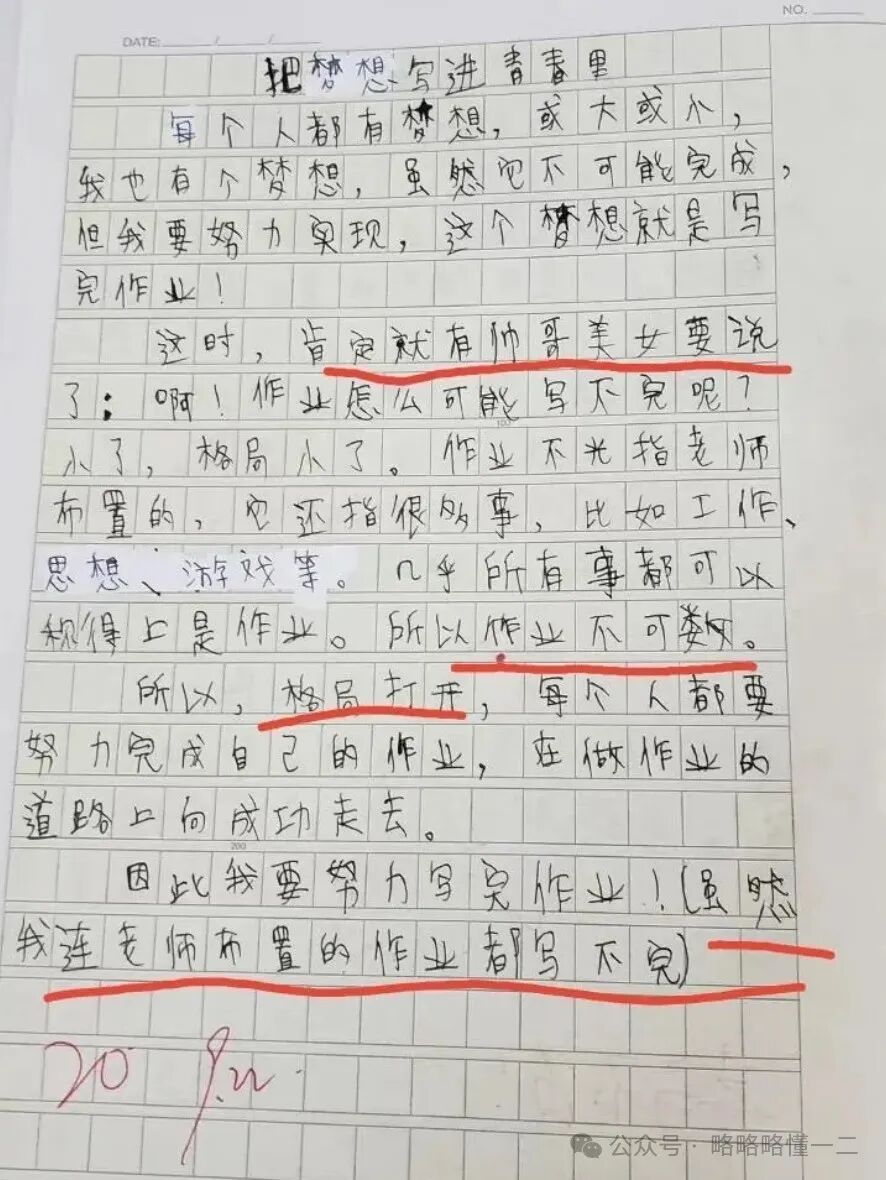 NO.
DATE: / /
把梦想写进青春里
每个人都有梦想，或大或小，
我也有个梦想，虽然它不可能完成，
但我要努力实现，这个梦想就是写
完作业！
这时，肯定就有帅哥美女要说
了：啊！作业怎么可能写不完呢？
100
小了，格局小了。作业不光指老师
布置的，它还指很多事，比如工作、
思想、游戏等。几乎所有事都可以
称得上是作业。所以作业不可数。
所以，格局打开，每个人都要
努力完成自己的作业，在做作业的
道路上向成功走去。
200
因此我要努力写完作业！(虽然
我连老师布置的作业都写不完)
20 9.22
公众号·略略略懂一二